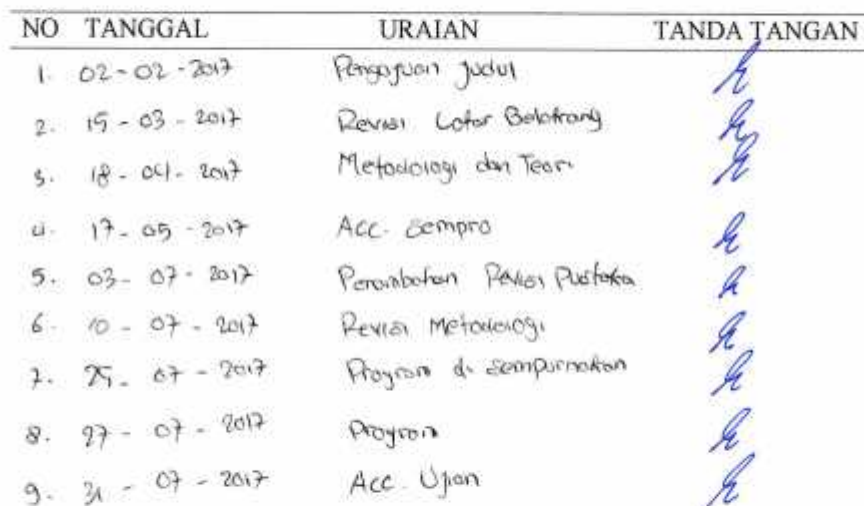 NO TANGGAL URAIAN TANDA TANGAN
1. 02-02-2017 Pengajuan Judul
2. 15-03-2017 Revisi Latar Belakang
3. 18-04-2017 Metodologi dan Teori
4. 17-05-2017 Acc. Sempro
5. 03-07-2017 Penambahan Revisi Pustaka
6. 10-07-2017 Revisi Metodologi
7. 25-07-2017 Program di sempurnakan
8. 27-07-2017 Program
9. 31-07-2017 Acc. Ujian